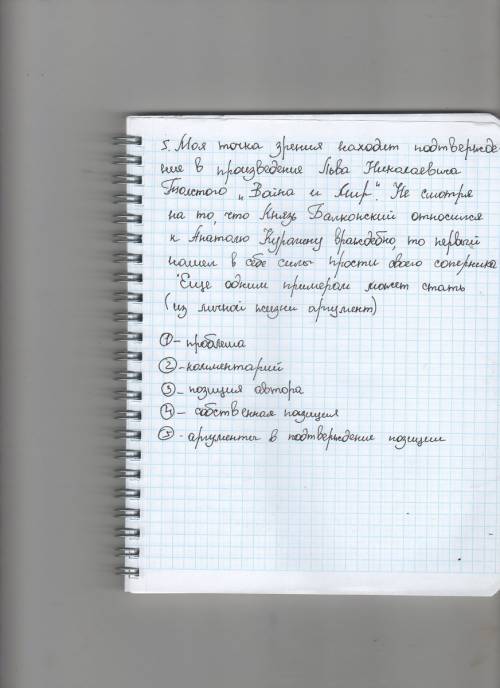 5. Моя точка зрения находит подтвержде-
ние в произведение Льва Николаевича
Толстого „Война и Мир". Не смотря
на то, что Князь Балконский относился
к Анатолю Курагину враждебно, то первый
нашел в себе силы прости своего соперника
Еще одним примером может стать
(из личной жизни аргумент)
1 - проблема
2 - комментарий
3 - позиция автора
4 - собственная позиция
5 - аргументы в подтверждение позиции